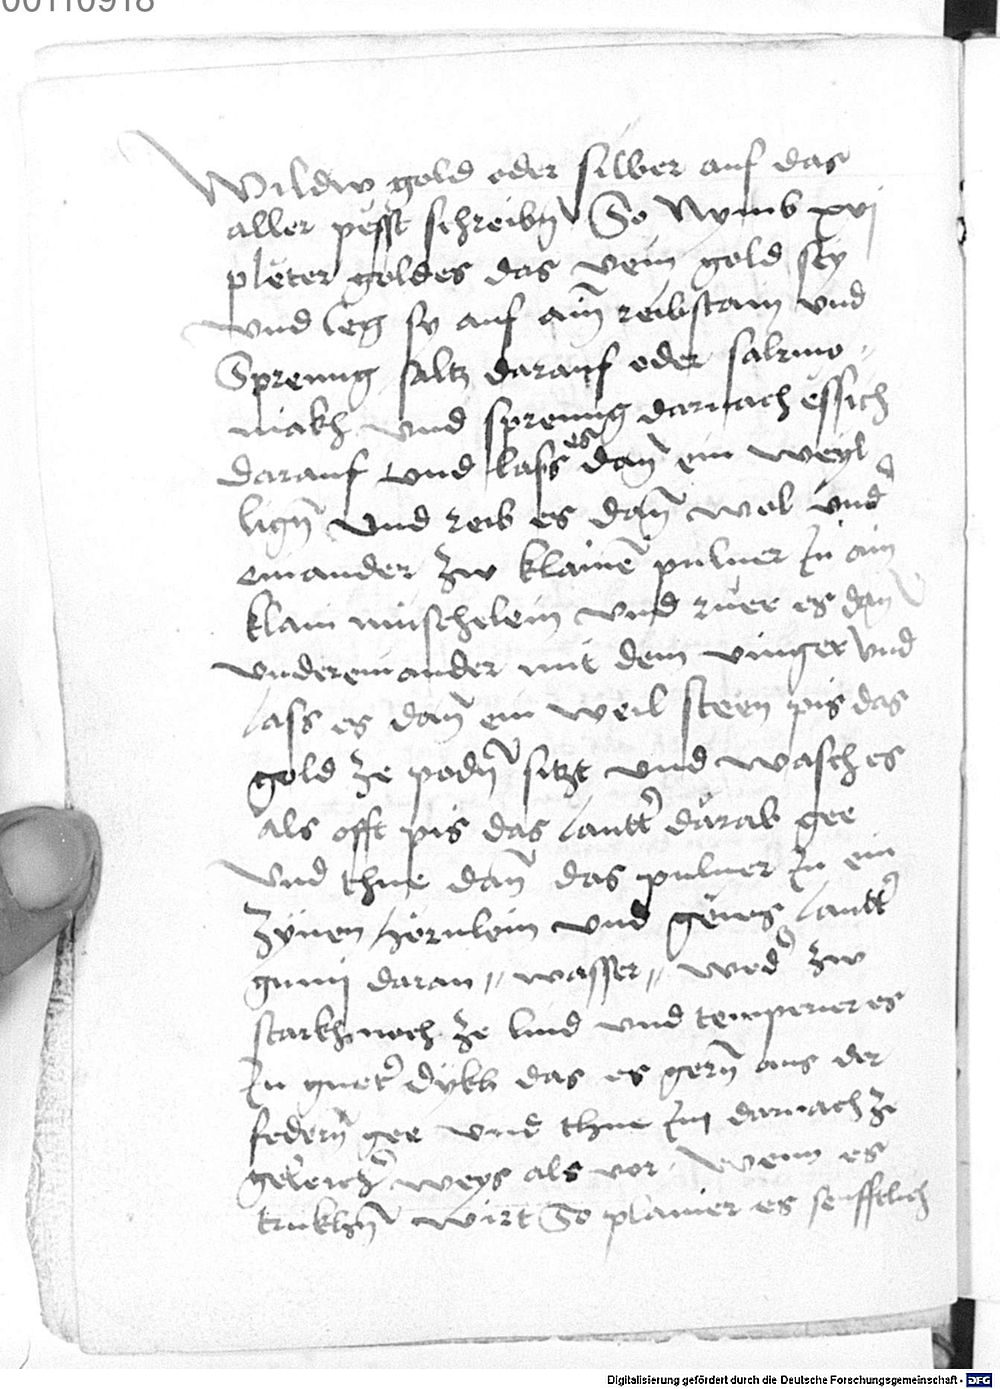 00110918
Wildw gold oder silber auf das
aller pesst schreibn So Nymb xvj
pleter goldes das vein gold sey
vnd leg sy auf ain reibstain vnd
Spreng saltz darauf oder salrmo„
niakh vnd spreng darnach essich
darauf vnd lass es dan ein weyl
lign vnd reib es dan wol vnd
einander zw klainē puluer Jn ain
klain muschelein vnd ruer es dan
vndereinander mit dem vinger vnd
lass es dan ein weil steen pis das
gold ze podn sitzt vnd wasch es
als offt pis das lautt darab gee
vnd thue dan das puluer Jn ein
zynen hornlein vnd geus lautt
gumj daran „ wasser „ wed zw
starkh noch ze lind vnd temperier es
Jn guet dykh das es gern aus der
federn gee vnd thue Jm darnach ze
geleich weys als vor. Wenn es
trukhn wirt So planier es senfftlich
Digitalisierung gefördert durch die Deutsche Forschungsgemeinschaft - DFG